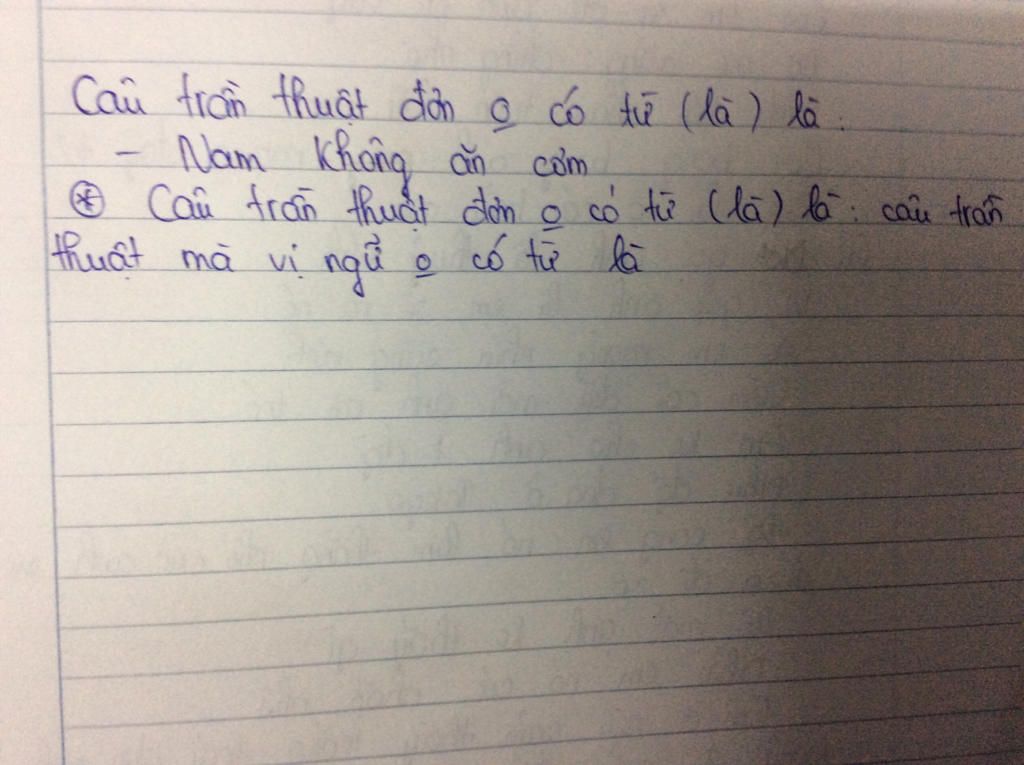 Câu trần thuật đơn o có từ (là) là:
- Nam không ăn cơm
* Câu trần thuật đơn o có từ (là) là: câu trần
thuật mà vị ngữ o có từ là